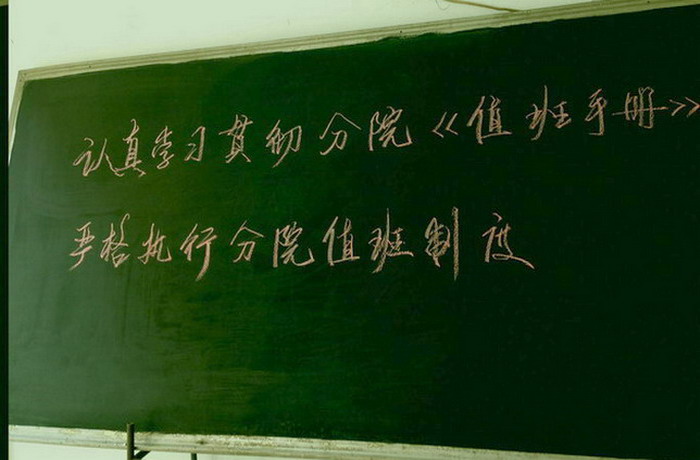 认真学习贯彻分院《值班手册》
严格执行分院值班制度